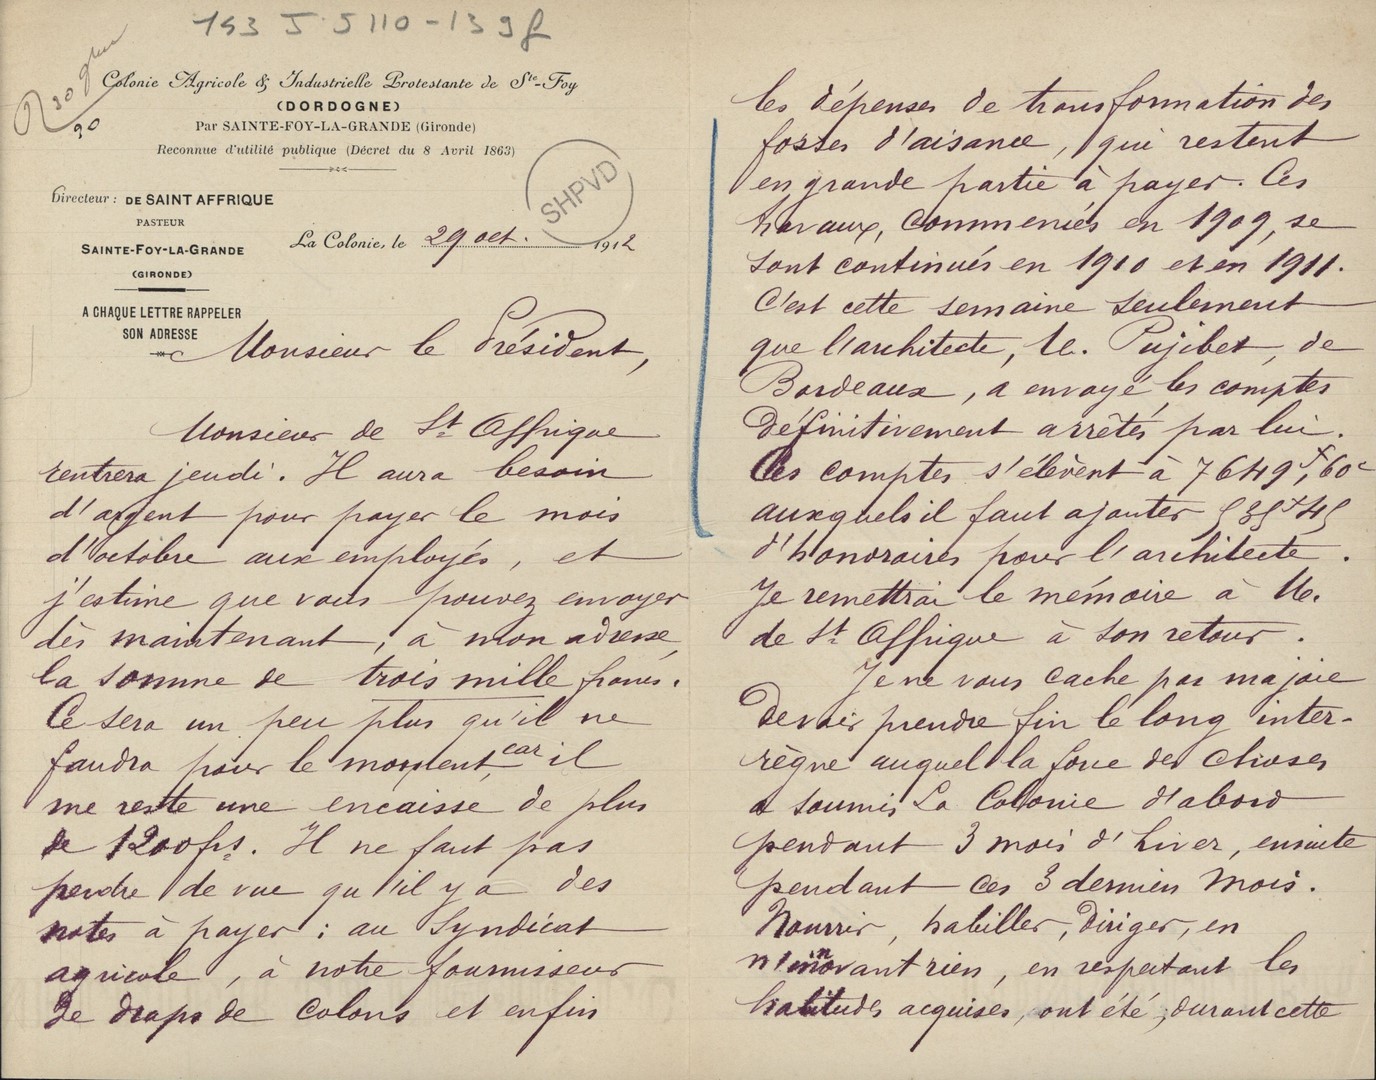 153 J 5110-139f
Colonie Agricole & Industrielle Protestante de Ste-Foy
(DORDOGNE)
Par SAINTE-FOY-LA-GRANDE (Gironde)
Reconnue d'utilité publique (Décret du 8 Avril 1863)
SHPVD
Directeur : DE SAINT AFFRIQUE
PASTEUR
SAINTE-FOY-LA-GRANDE
(GIRONDE)
A CHAQUE LETTRE RAPPELER
SON ADRESSE
La Colonie, le 29 oct. 1912
Monsieur le Président,
Monsieur de St Affrique
rentrera jeudi. Il aura besoin
d'argent pour payer le mois
d'octobre aux employés, et
j'estime que vous pouvez envoyer
dès maintenant, à mon adresse,
la somme de trois mille francs.
Ce sera un peu plus qu'il ne
faudra pour le moment, car il
me reste une encaisse de plus
de 1200frs. Il ne faut pas
perdre de vue qu'il y a des
notes à payer : au Syndicat
agricole, à notre fournisseur
de draps de colons et enfin
les dépenses de transformation des
fosses d'aisance, qui restent
en grande partie à payer. Ces
travaux, commencés en 1909, se
sont continués en 1910 et en 1911.
C'est cette semaine seulement
que l'architecte, M. Pujibet, de
Bordeaux, a envoyé les comptes
définitivement arrêtés par lui.
Ces comptes s'élèvent à 7649f,60c
auxquels il faut ajouter 535f45
d'honoraires pour l'architecte.
Je remettrai le mémoire à M.
de St Affrique à son retour.
Je ne vous cache pas ma joie
de voir prendre fin le long inter-
règne auquel la force des choses
a soumis La Colonie d'abord
pendant 3 mois d'hiver, ensuite
pendant ces 3 derniers mois.
Nourrir, habiller, diriger, en
n'innovant rien, en respectant les
habitudes acquises, ont été, durant cette